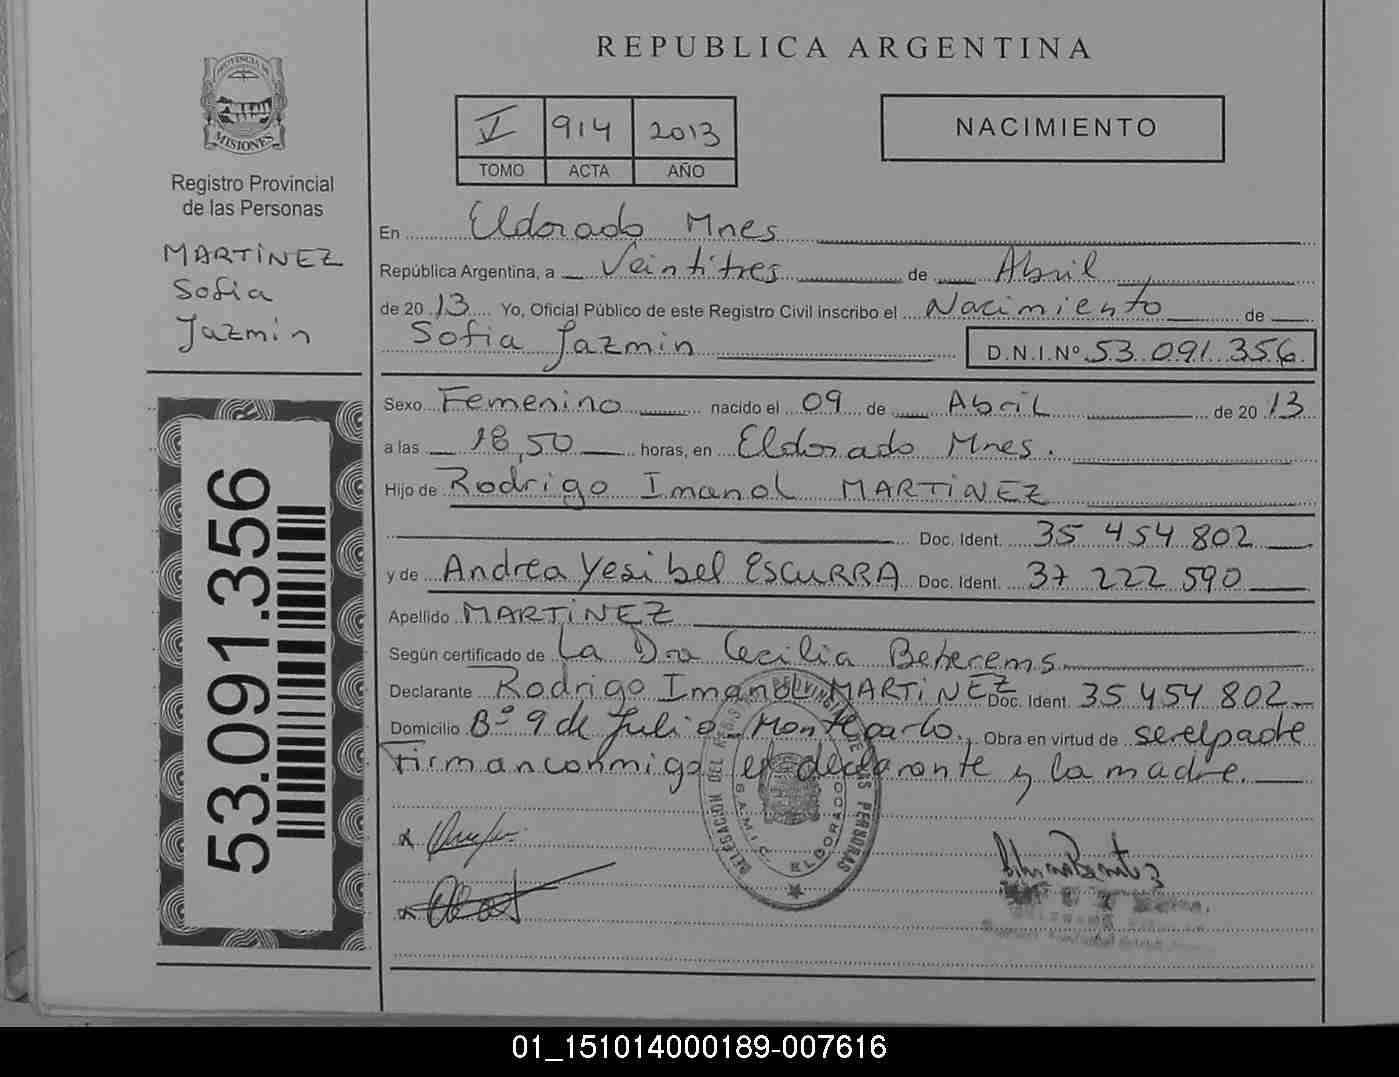 REPUBLICA ARGENTINA
PROVINCIA DE
MISIONES
Registro Provincial
de las Personas
MARTINEZ
Sofia
Jazmin
53.091.356
V 914 2013
TOMO ACTA AÑO
NACIMIENTO
En Eldorado Mnes
República Argentina, a Veintitres de Abril
de 2013 Yo, Oficial Público de este Registro Civil inscribo el Nacimiento de
Sofia Jazmin D.N.I.Nº 53.091.356
Sexo Femenino nacido el 09 de Abril de 2013
a las 18,50 horas, en Eldorado Mnes.
Hijo de Rodrigo Imanol MARTINEZ
Doc. Ident. 35 454 802
y de Andrea Yesibel ESCURRA Doc. Ident. 37 222 590
Apellido MARTINEZ
Según certificado de La Dra Cecilia Beherems
Declarante Rodrigo Imanol MARTINEZ Doc. Ident. 35 454 802
Domicilio Bº 9 de Julio - Montecarlo., Obra en virtud de ser el padre
Firman conmigo el declarante y la madre.
DELEGACION DEL REGISTRO PROVINCIAL DE LAS PERSONAS
S.A.M.I.C. ELDORADO
01_151014000189-007616